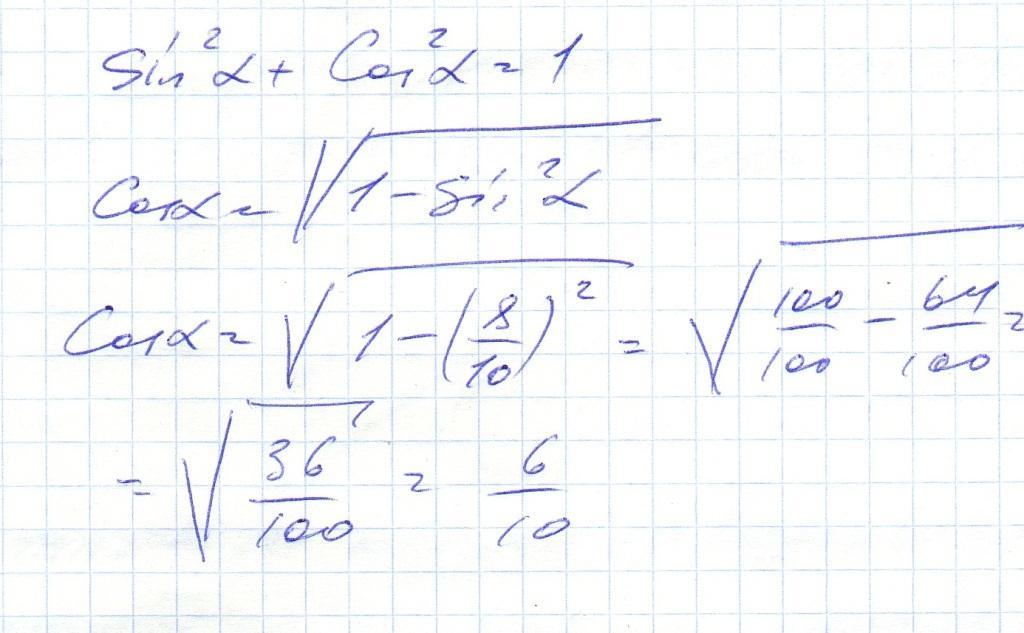 Sin²α + Cos²α = 1
Cosα = √(1 - Sin²α)
Cosα = √(1 - (8/10)²) = √(100/100 - 64/100) =
= √(36/100) = 6/10